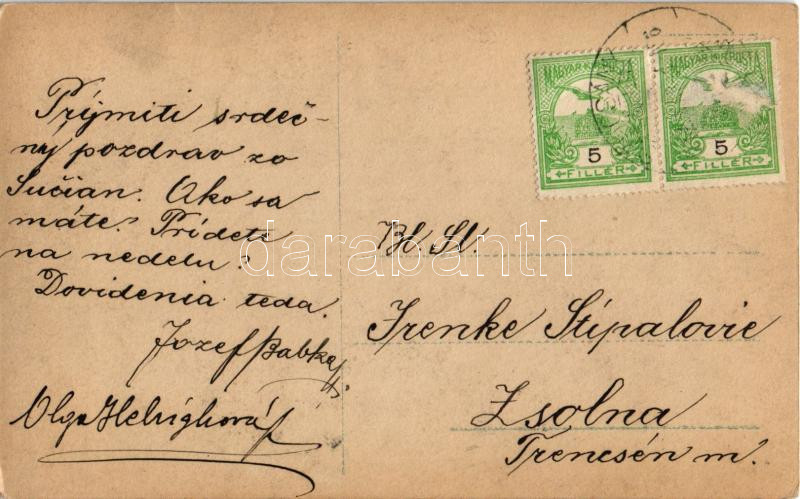 Prýmiti srdeč-
ný pozdrav zo
Sučian. Ako sa
máte? Prídete
na nedelu?
Dovidenia teda.
Jozef Babka
Olga
MAGYAR KIR. POSTA
5
FILLÉR
MAGYAR KIR. POSTA
5
FILLÉR
Bl. Sl.
Irenke Stipalovic
Zsolna
Trencsén m.
darabanth